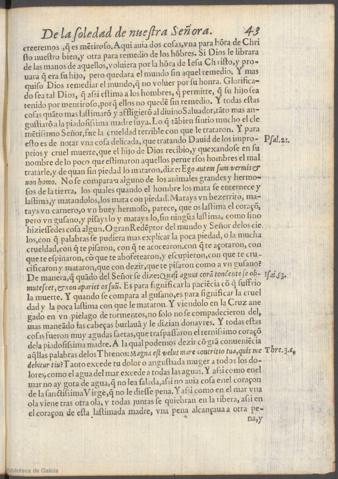 De la soledad de nuestra Señora. 43
creeremos, q̃ es mẽtiroso, Aqui auia dos cosas, vna para hõra de Chri
sto nuestro bien, y otra para remedio de los hõbres. Si Dios le librara
de las manos de aquellos, voluiera por la hõra de Iesu Christo, y pro-
uara q̃ era su hijo, pero quedara el mundo sin aquel remedio. Y mas
quiso Dios remediar el mundo, q̃ no voluer por su honra. Glorifica-
do sea tal Dios, q̃ assi estima a los hombres, q̃ permitte, q̃ su hijo sea
tenido por mentiroso, por q̃ ellos no quedẽ sin remedio. Y todas estas
cosas quãto mas lastimarõ y affligierõ al diuino Saluador, tãto mas an-
gustiarõ a la piadosissima madre suya. Lo q̃ tãbien sintio mucho el cle
mẽtissimo Señor, fue la crueldad terrible con que le trataron. Y para
esto es de notar vna cosa delicada, que tratando Dauid de los impro- Psal. 21.
prios y cruel muerte, que el hijo de Dios recibio, y quexandose en su
nombre de lo poco que estimaron aquellos peruersos hombres el mal
tratarle, y de quan sin piedad lo mataron, dize: Ego autem sum vermis & 
non homo. No se compara a alguno de los animales grandes y hermo-
sos de la tierra, los quales quando el hombre los mata se enternece y
lastima, y matandolos, los mata con piedad. Matays vn bezerrito, ma-
tays vn carnero, y vn buey hermoso, parece, que os lastima el coraçõ,
pero vn gusano, y pisays lo y matays lo, sin ningũa lastima, como sino
hiziessedes cosa algun. O gran Redẽptor del mundo y Señor de los cie
los, con q̃ palabras se pudiera mas explicar la poca piedad, o la mucha
crueldad, con q̃ te pisaron, con q̃ te acocearon, con q̃ te açotaron, con
que te espinaron, cõ que te abofetearon, y escupieron, con que te cru-
cificaron y mataron, que con dezir, que te pisaron como a vn gusano?
De manera, q̃ quãdo del Señor se dize: Quasi agnus corã tondente se ob- Isai. 53.
mutescet, & non aperiet os suũ. Es para significar la paciẽcia cõ q̃ suffrio
la muerte. Y quando se compara al gusano, es para significar la cruel
dad y la poca lastima con que le mataron. Y viendolo en la Cruz ane
gado en vn pielago de tormentos, no solo no se compadecieron del,
mas meneãdo las cabeças burlauã y le dezian donayres. Y todas estas
cosas fueron muy agudas saetas, que traspassaron el ternissimo coraçõ
de la piadosissima madre. A la qual podemos dezir cõ grã conueniẽcia
aq̃llas palabras de los Threnos: Magna est velut mare contritio tua, quis me Thre. 2.c.
debitur tui? Tanto excede tu dolor o angustiada muger a todos los do-
lores, como el agua del mar excede a todas las aguas. Y assi como en el
mar no ay gota de agua, q̃ no sea salada, assi no auia cosa en el coraçon
de la sanctissima Virgẽ, q̃ no le diesse pena. Y assi como en el mar vna
ola viene tras otra ola, y todas juntas se quiebran en la ribera, assi en
el coraçon de esta lastimada madre, vna pena alcançaua a otra pe-
na, y
Biblioteca de Galicia